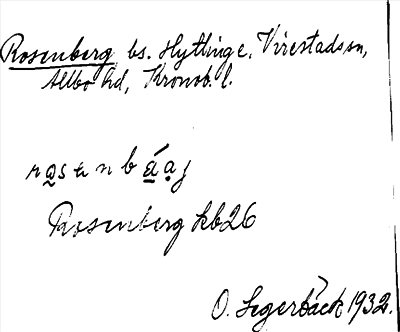 Rosenberg bs. Hyttinge, Virestads sn,
Allbo hd, Kronob. l.
Rosenberg kb26
O. Segerbäck 1932.